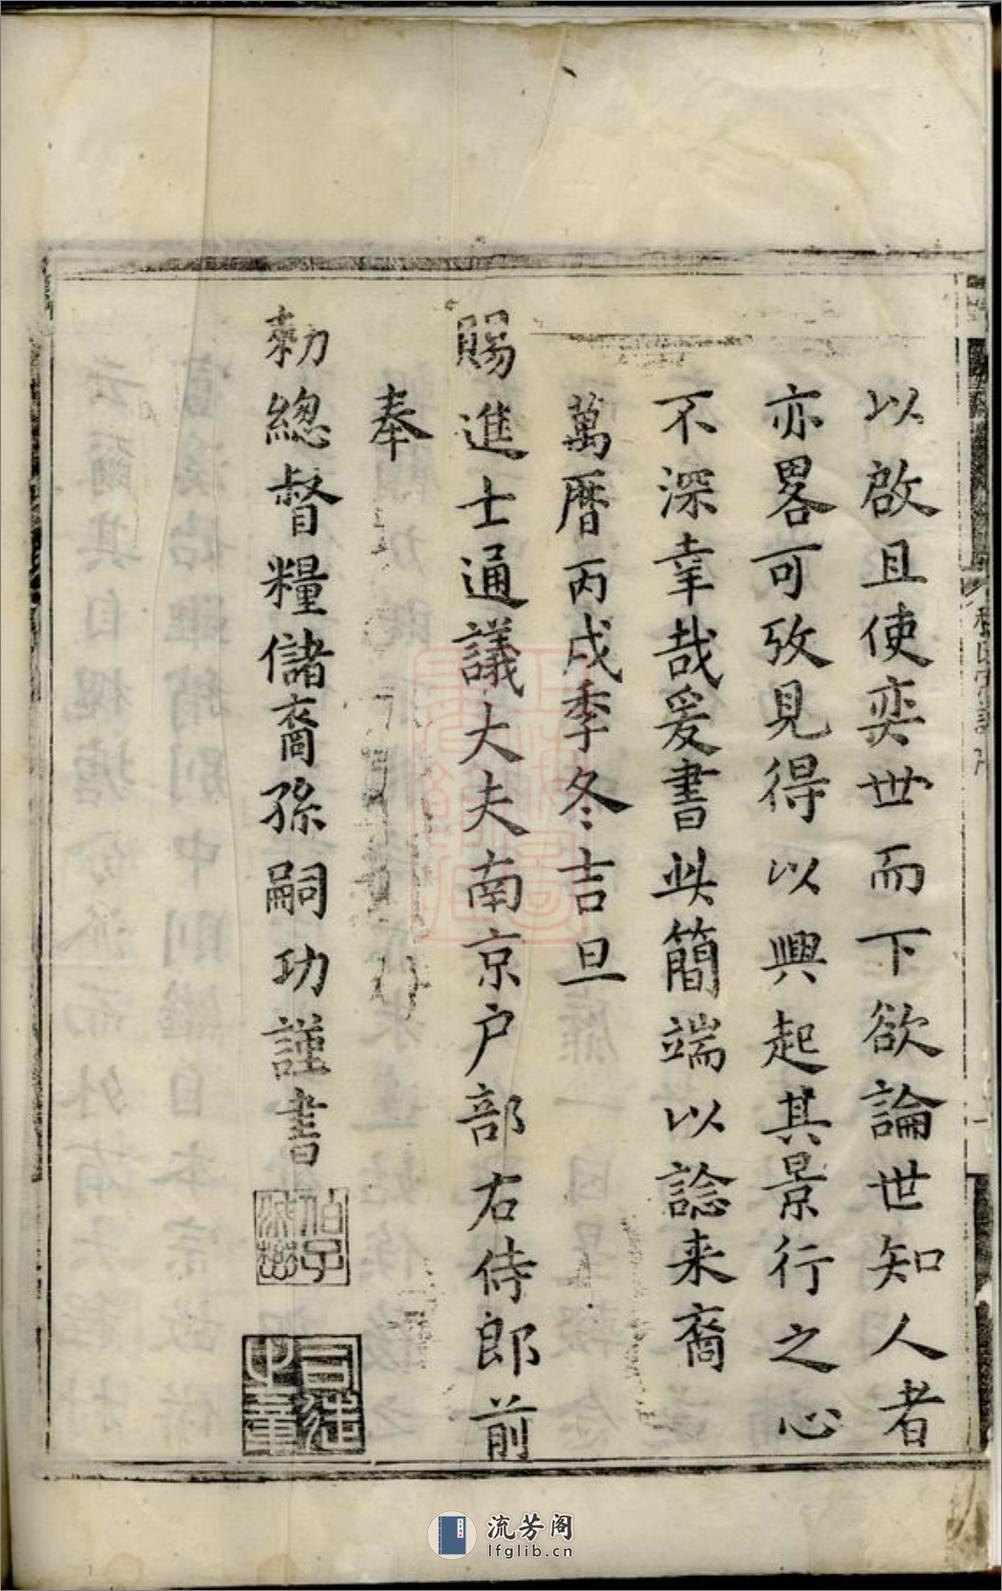 以啟且使奕世而下欲論世知人者
亦畧可攷見得以興起其景行之心
不深幸哉爰書此簡端以諗来裔
萬曆丙戌季冬吉旦
賜進士通議大夫南京户部右侍郎前
奉
勑總督糧儲裔孫嗣功謹書
流芳阁
lfglib.cn